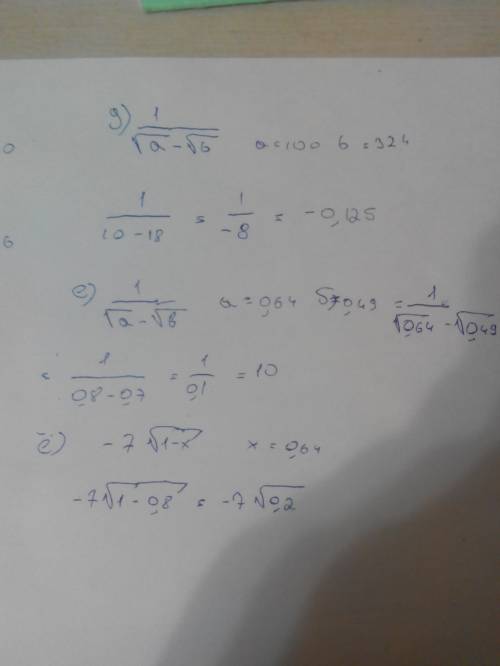 0
д) 1/(√a - √b) a=100 b=324
6
1/(10-18) = 1/-8 = -0,125
е) 1/(√a - √b) a=0,64 b=0,49 = 1/(√0,64 - √0,49)
= 1/(0,8-0,7) = 1/0,1 = 10
ё) -7√1-x x=0,64
-7√1-0,8 = -7√0,2